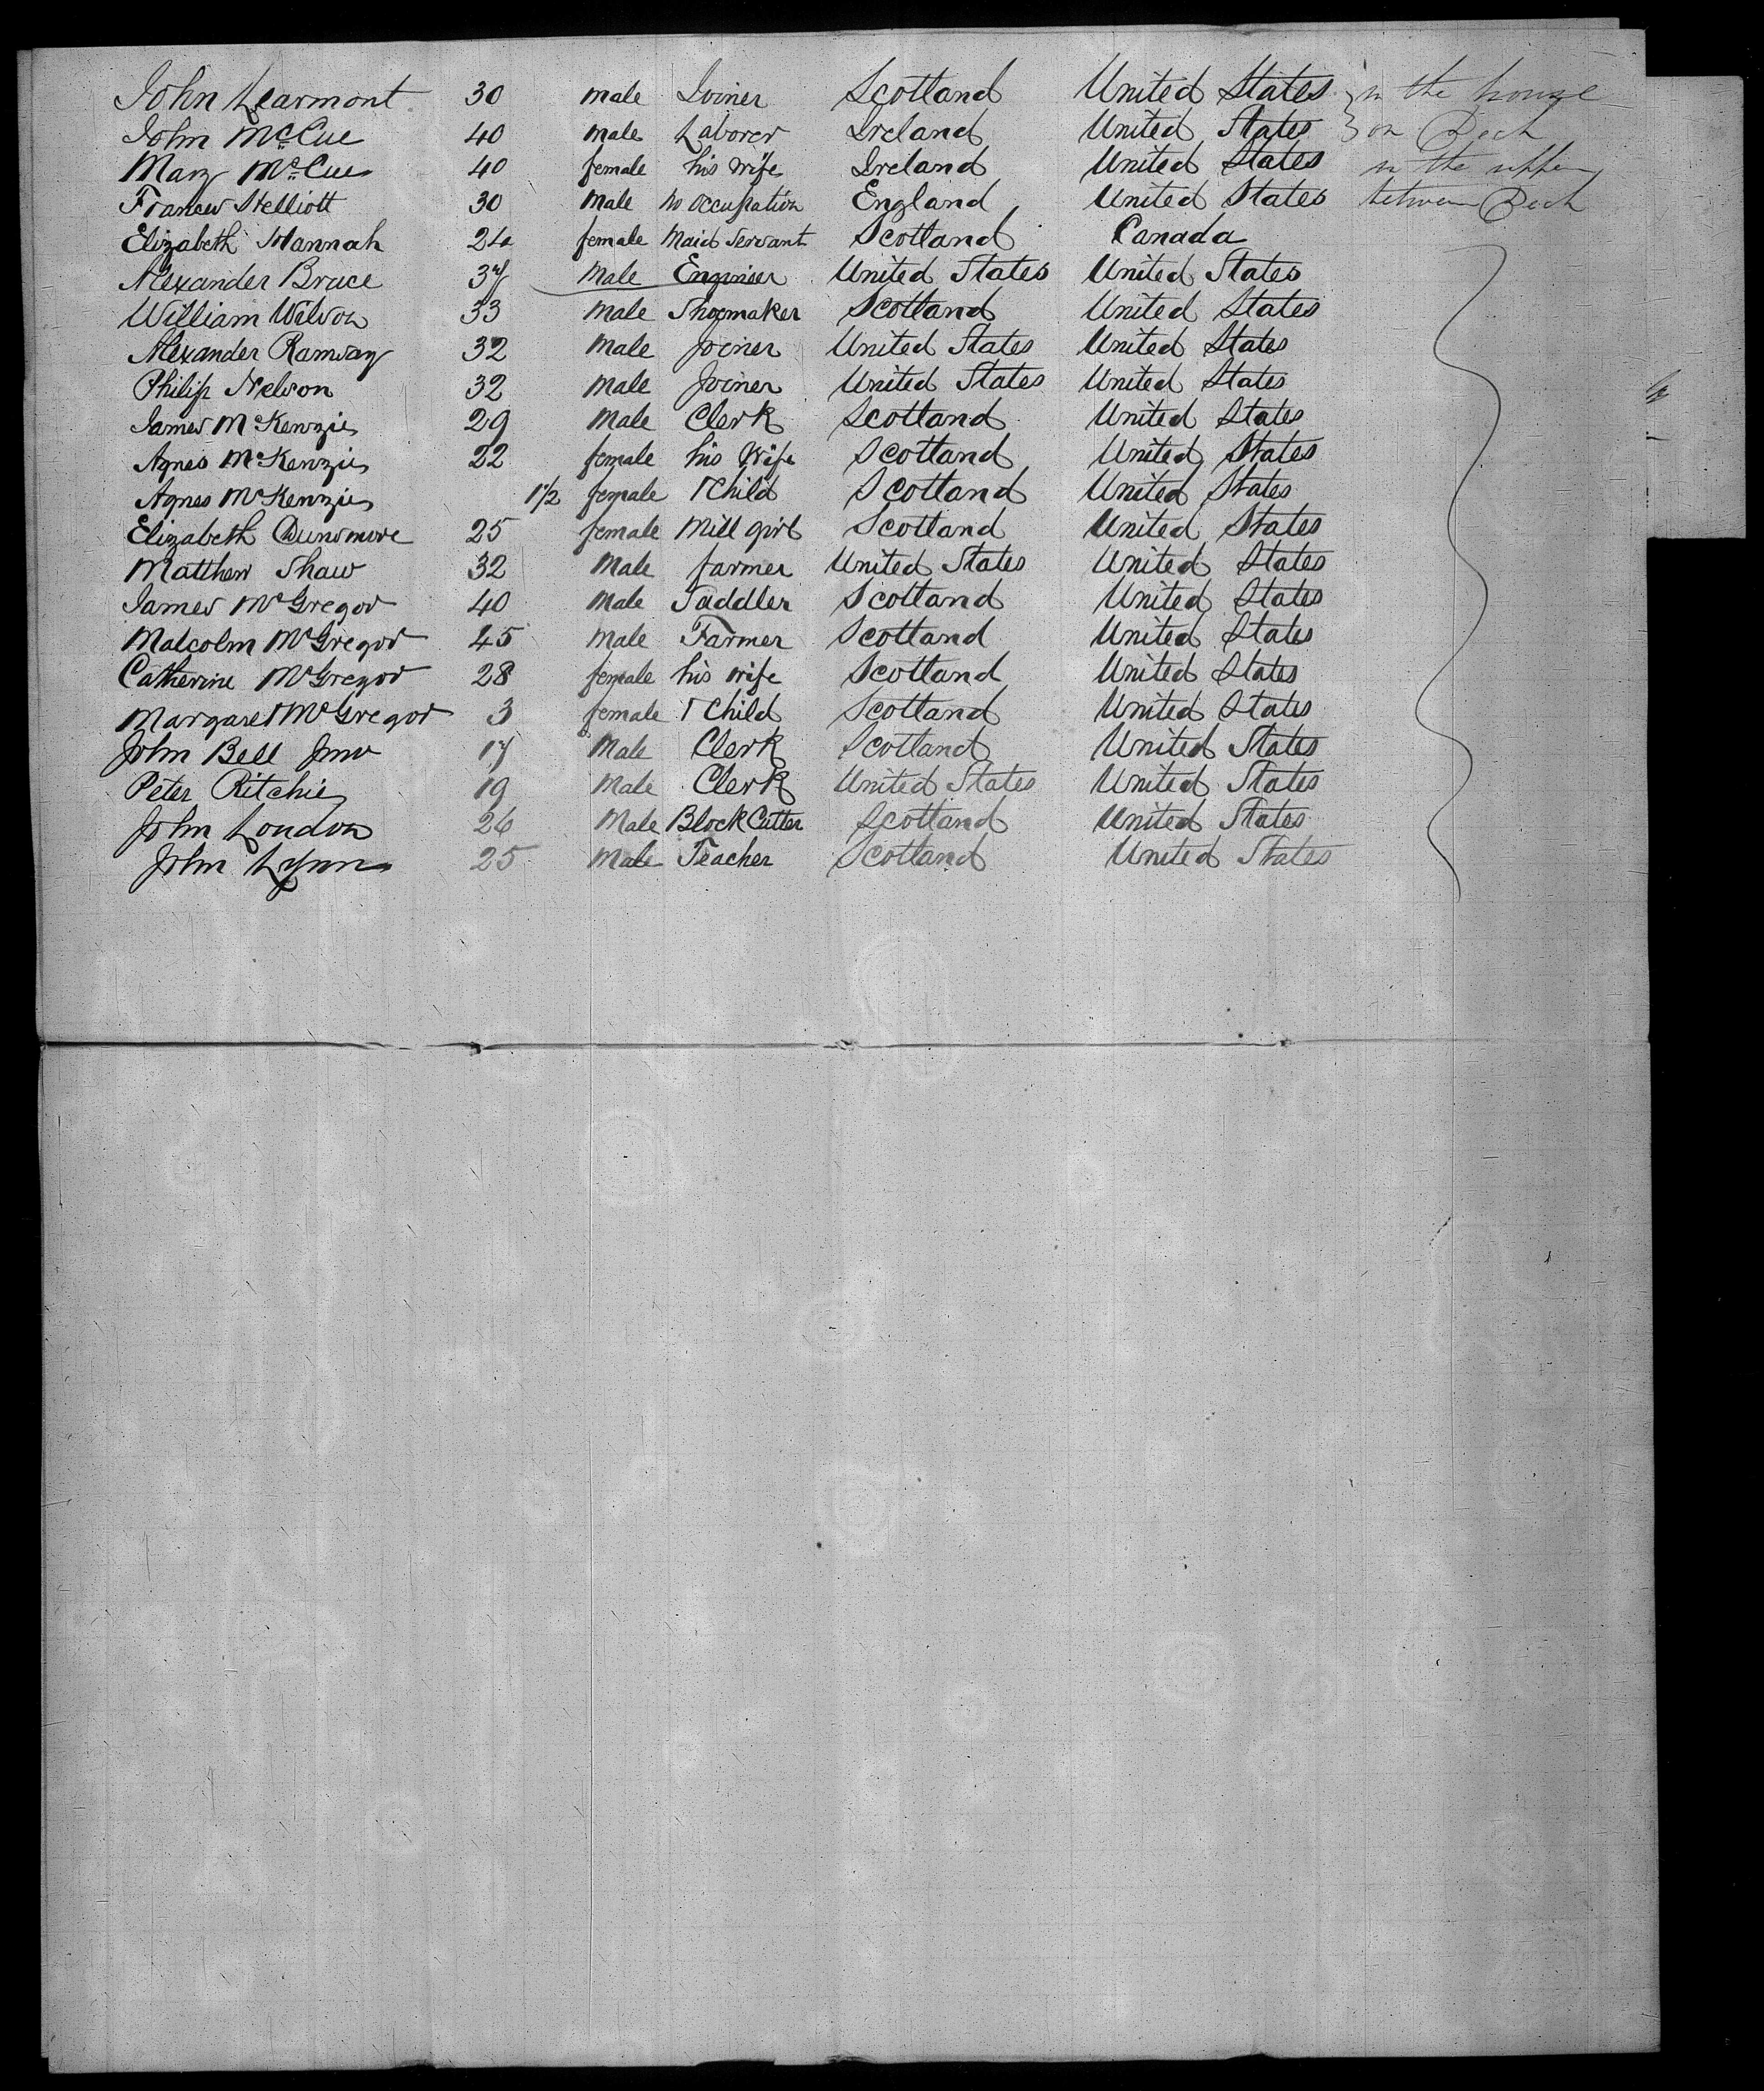 John Learmont 30 male Joiner Scotland United States } in the house
John McCue 40 male Laborer Ireland United States } on Deck
Mary McCue 40 female his wife Ireland United States in the upper
Frances Helliott 30 Male no occupation England United States between Deck
Elizabeth Hannah 24 female Maid Servant Scotland Canada
Alexander Bruce Male Engineer United States United States
William Wilson 33 Male Shoemaker Scotland United States
Alexander Ramsay 32 Male Joiner United States United States
Philip Nelson 32 Male Joiner United States United States
James McKenzie 29 Male Clerk Scotland United States
Agnes McKenzie 22 female his Wife Scotland United States
Agnes McKenzie 1 1/2 female Child Scotland United States
Elizabeth Dunsmore 25 female Mill girl Scotland United States
Matthew Shaw 32 Male farmer United States United States
James McGregor 40 Male Saddler Scotland United States
Malcolm McGregor 45 Male Farmer Scotland United States
Catherine McGregor 28 female his wife Scotland United States
Margaret McGregor 3 female Child Scotland United States
John Bell Junr 17 Male Clerk Scotland United States
Peter Ritchie 19 Male Clerk United States United States
John Loudon 26 Male Block Cutter Scotland United States
John Lynn 25 Male Teacher Scotland United States